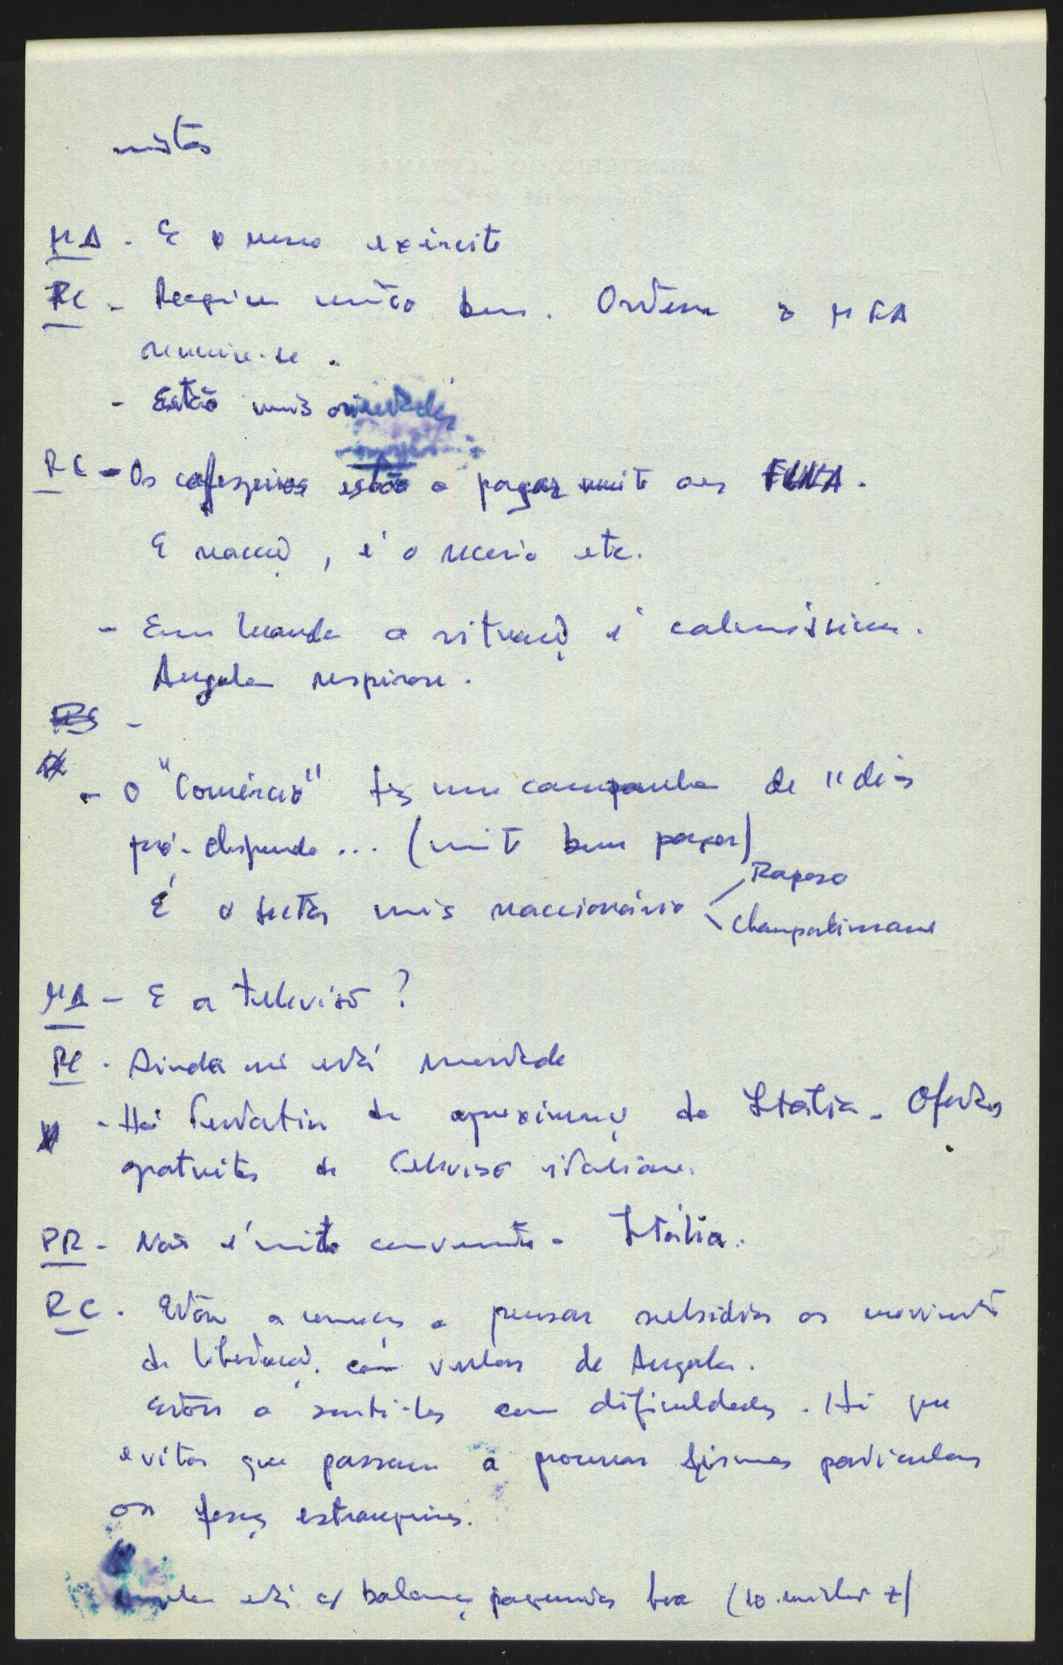 MA - E o nosso exército
RC - Reagiu muito bem. Ontem o MFA
reuniu-se.
- Estão mais orientados
RC - Os cafezeiros estão a pagar muito aos FNLA.
E reacç, é o receio etc.
- Em Luanda a situaç é calmíssima.
Angola respirou.
RC -
- O "Comércio" fez uma campanha de 11 dias
pró- ... (muito bem pagos)
É o sector mais reaccionário
Raposo
Champalimaud
MA - E a televisão?
RC - Ainda não está montada
- Há tentativa de aproximaç da Itália. Ofertas
gratuitas de televisão italiana.
PR - Não é muito conveniente - Itália.
RC - Estou a começar a pensar subsidiar os moviment
de libertaç. com verbas de Angola.
Estou a senti-los com dificuldades. Há que
evitar que passem a procurar firmas particulares
ou forças estrangeiras.
está c/ balança pagamentos boa (10 milhões